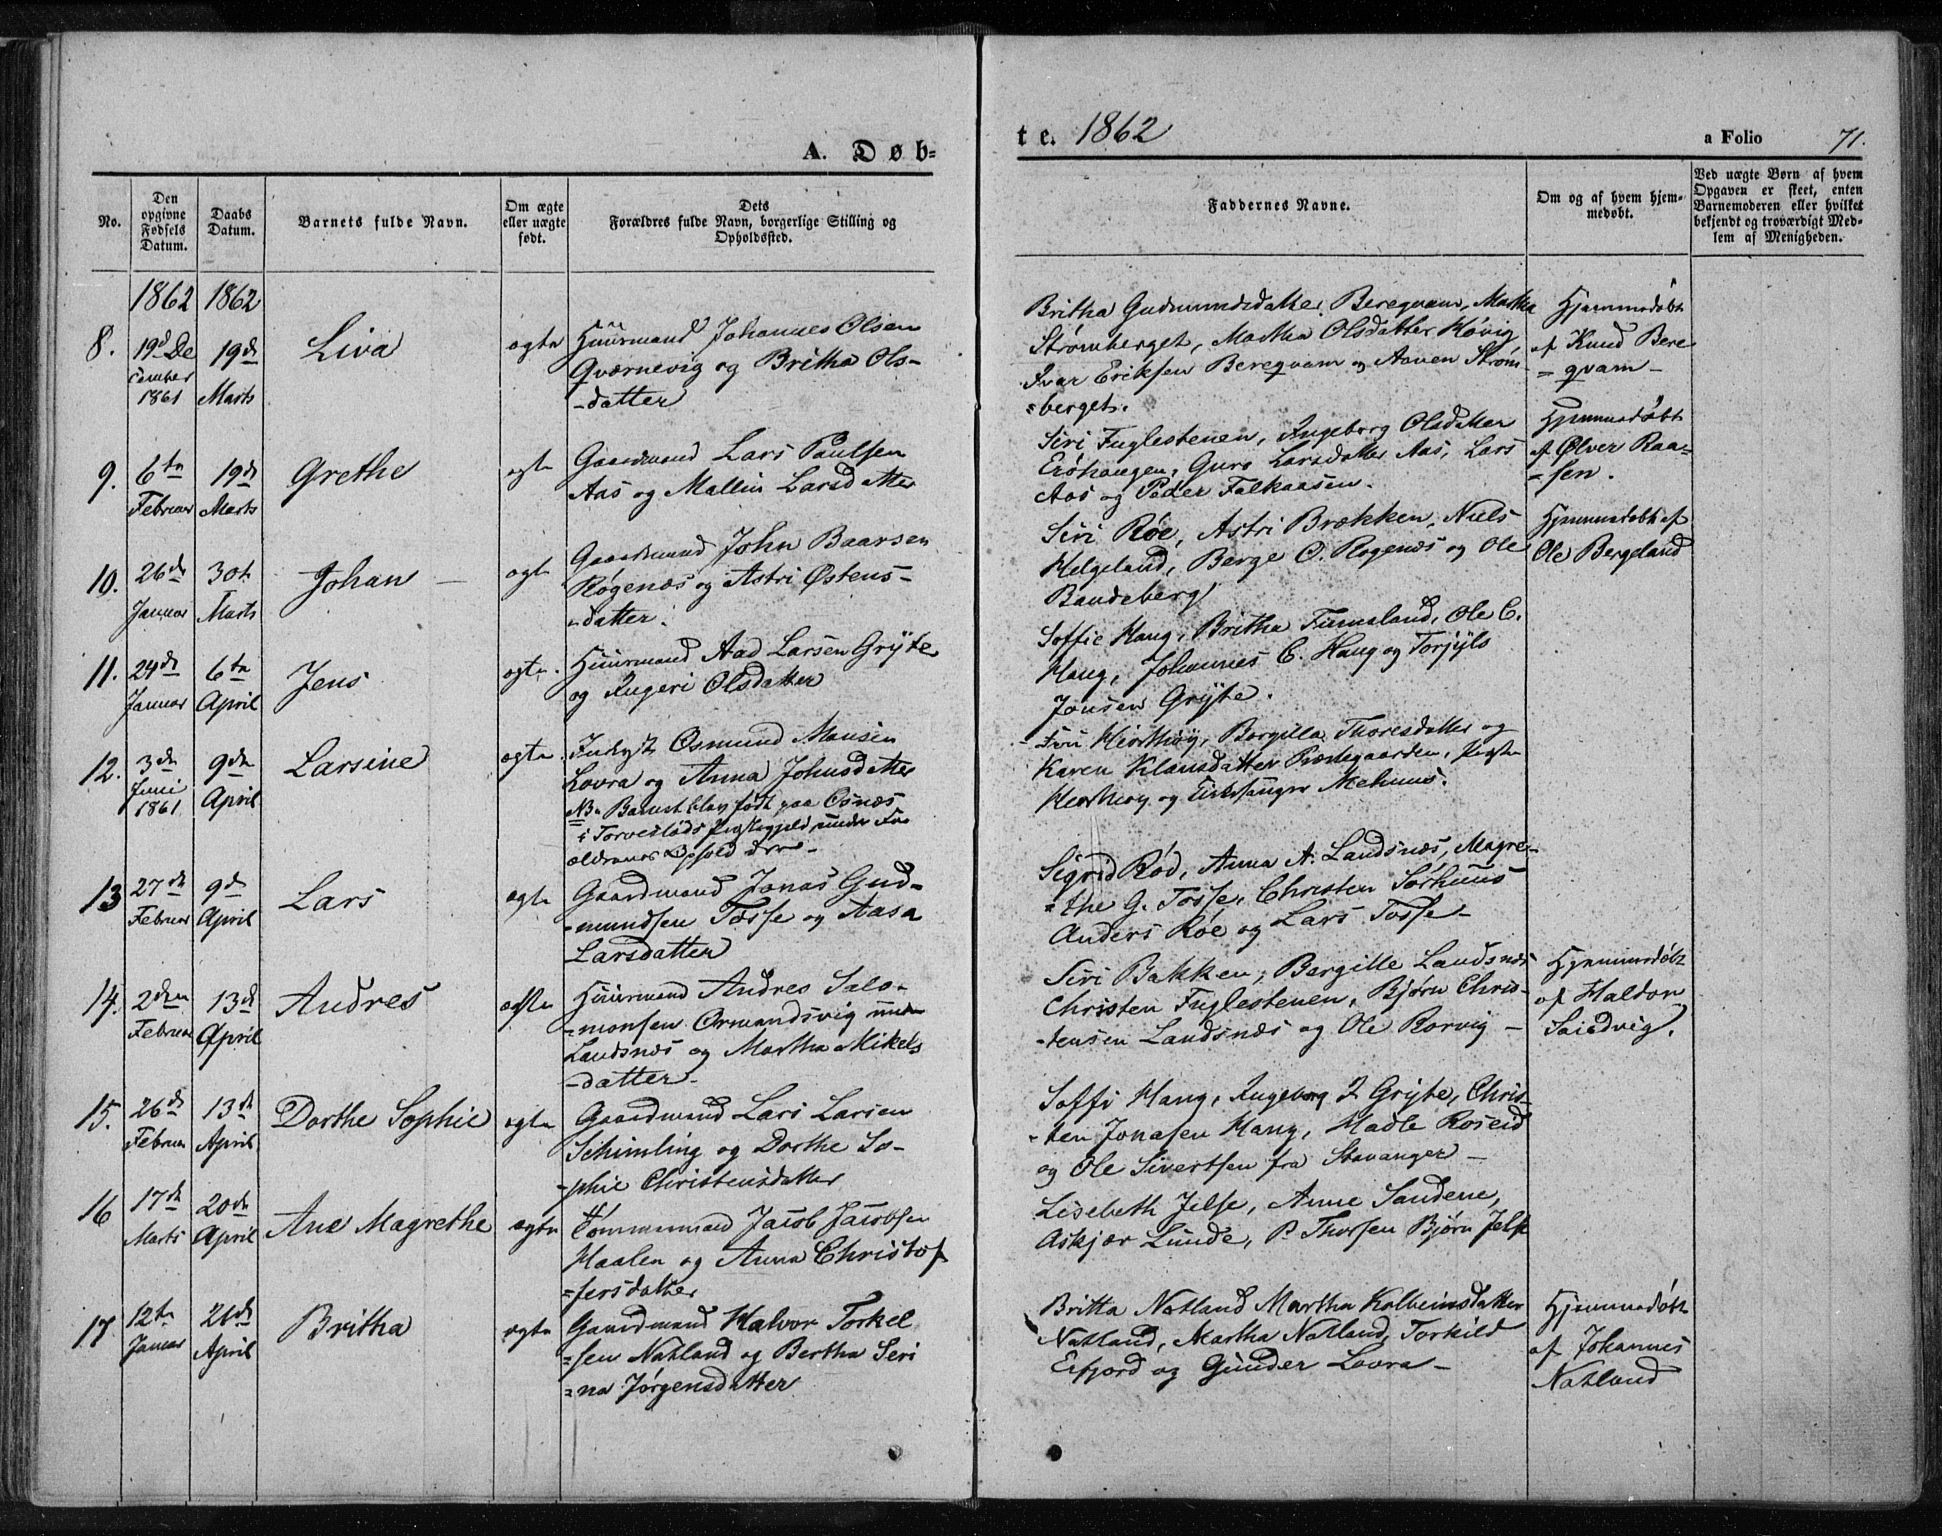 A. Døb=
te. 1862
a Folio 71.
No.
Den opgivne Fødsels Datum.
Daabs Datum.
Barnets fulde Navn.
Om ægte eller uægte født.
Dets Forældres fulde Navn, borgerlige Stilling og Opholdssted.
Faddernes Navne.
Om og af hvem hjemmedøbt.
Ved uægte Børn af hvem Opgaven er skeet, enten Barnemoderen eller hvilket bekjendt og troværdigt Medlem af Menigheden.
1862 1862
8. 19de December 1861
19de Marts
Liva
ægte
Huusmand Johannes Olsen
Qværnevig og Britha Ols-
-datter
Britha Gudmundsdatter Bereqvam, Martha
Strømberget, Martha Olsdatter Høvig
Ivar Eriksen Bereqvam og Aanen Strøm-
=berget.
Hjemmedøbt
af Knud Bere
=qvam-
9. 6te Februar
19de Marts
Grethe
ægte
Gaardmand Lars Paulsen
Aas og Mallin Larsdatter
Siri Fuglestenen, Ingeborg Olsdatter
Erøhaugen, Guro Larsdatter Aas, Lars
Aas og Peder Falkaasen.
Hjemmedøbt
af Ølver Raa=
=sen.
10. 26de Januar
30te Marts
Johan
ægte
Gaardmand John Baarsen
Røgenæs og Astri Østens-
-datter.
Siri Røe, Astri Brækken, Niels
Helgeland, Berge O. Rogenæs og Ole
Bandeberg
Hjemmedøbt af
Ole Bergeland
11. 24de Januar
6te April
Jens
ægte.
Huusmand Aad Larsen Gryte
og Ingeri Olsdatter
Soffie Haug, Britha Tumeland, Ole C.
Haug, Johannes C. Haug og Torjyls
Jonsen Gryte.
12. 3de Juni 1861
9de April
Larsine
ægte
Inderst Osmund Monsen
Lovra og Anna Johnsdatter
NB. Barnet blev født paa Osnæs
i Torvestads Præstegjeld under For
ældrenes Ophold der-
Fru Hierthøy, Borgilla Thoresdatter og
Karen Klausdatter Præstegaarden, Præste
Hierthøy og Kirkesanger Mehuus.
13 27de Februar
9de April
Lars
ægte
Gaardmand Jonas Gud-
-mundsen Tosse og Aasa
Larsdatter
Sigrid Rød, Anna A. Landsnæs, Magre-
=the G. Tosse, Christen Sørhuus
Anders Røe og Lars Tosse-
14. 2den Februar
13de April
Andres
ægte
Huusmand Andres Salo-
=monsen Ormandsvig under
Landsnæs og Martha Mikels
-datter-
Siri Bakken, Bergille Landsnæs
Christen Fuglestenen, Bjørn Chris-
-tensen Landsnæs og Ole Rorvig -
Hjemmedøbt
af Haldor
Sandvig.
15. 26de Februar
13de April
Dorthe Sophie
ægte
Gaardmand Lars Larsen
Schimling og Dorthe So-
-phie Christensdatter
Soffi Haug, Ingeborg J. Gryte, Chris-
-ten Jonasen Haug, Hadle Roseid
og Ole Sivertsen fra Stavanger -
16 17de Marts
20de April
Ane Magrethe
ægte
Tømmermand Jacob Jacobsen
Haalen og Anna Christof
=fersdatter
Lisebeth Jelse, Anne Sandene,
Askjær Lunde, P. Thorsen Bjørn Jelse
17 12te Januar
21de April
Britha
ægte
Gaardmand Halvor Torkel
=sen Natland og Bertha Seri
=na Jørgensdatter
Britta Natland Martha Kolbeinsdatter
Natland, Martha Natland, Torkild
Erfjord og Gunder Lovra-
Hjemmedøbt
af Johannes
Natland